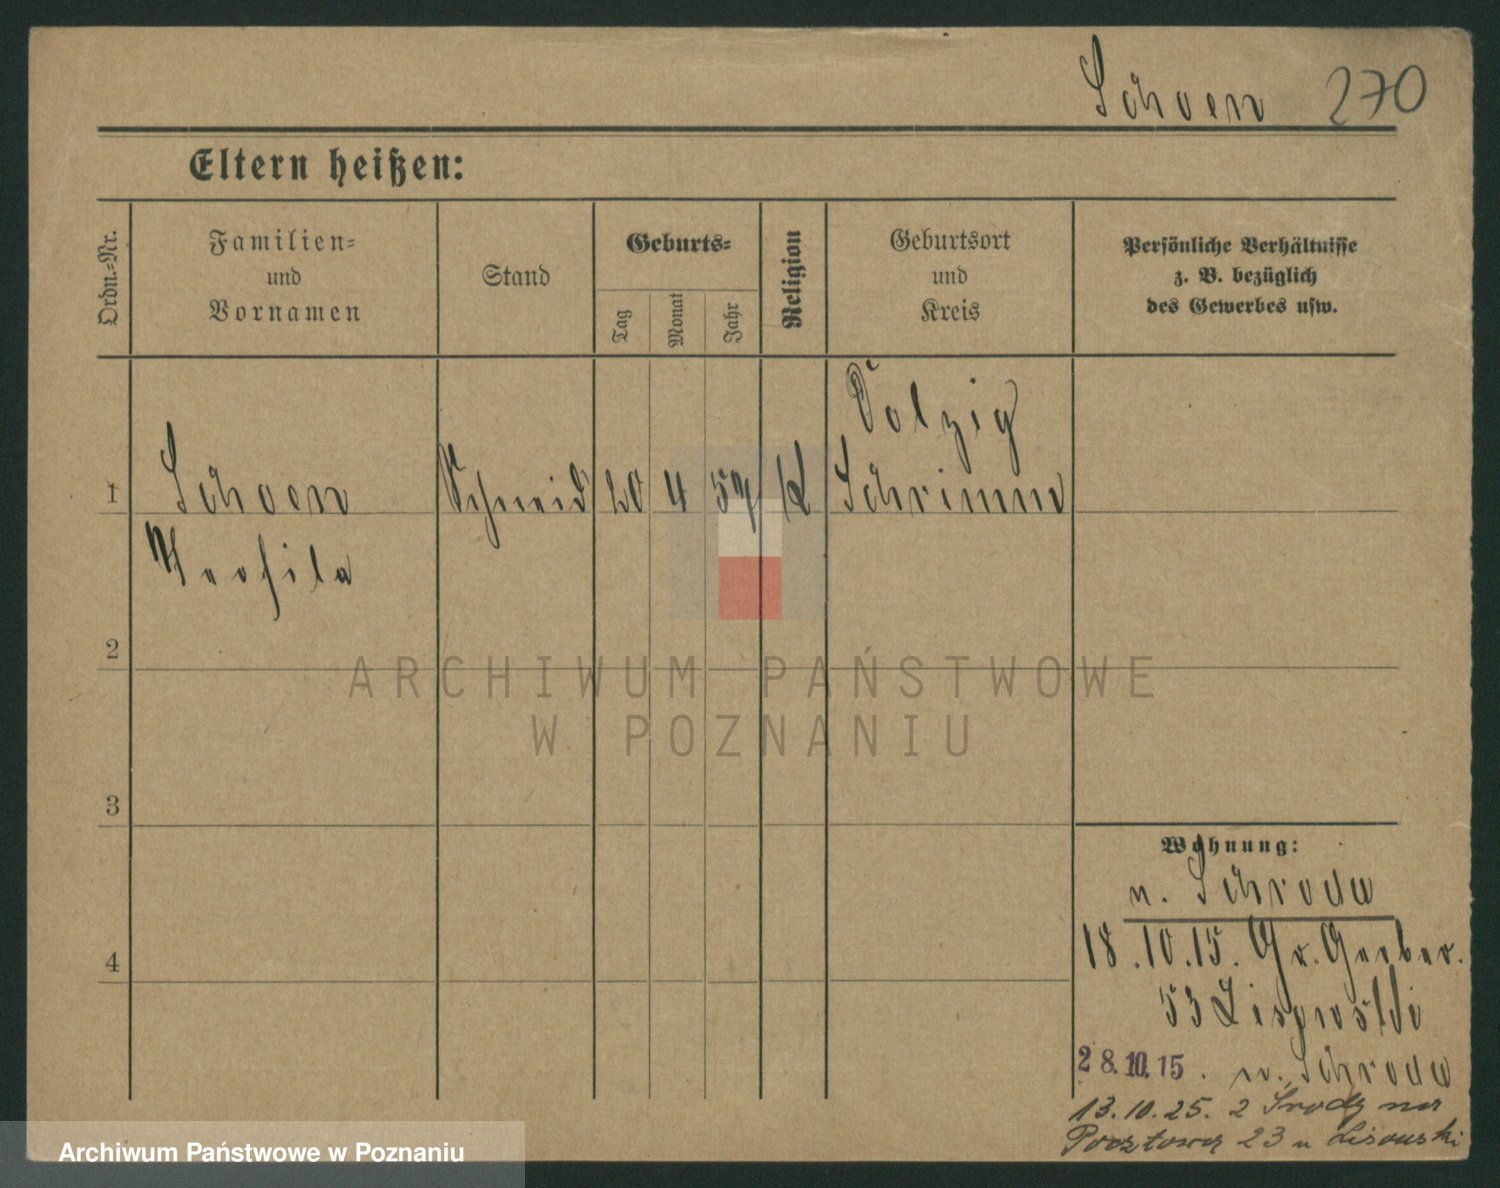 Schoen 270
Eltern heißen:
Ordn.=Nr.
Familien=
und
Vornamen
Stand
Geburts=
Tag
Monat
Jahr
Religion
Geburtsort
und
Kreis
Persönliche Verhältnisse
z. B. bezüglich
des Gewerbes usw.
Dolzig
1 Schoen Schneid 20 4 59 K Schrimm
2
ARCHIWUM PAŃSTWOWE
W POZNANIU
3
Wohnung:
n. Schroda
18.10.15. Gr. Gerber.
4
53
28.10.15. n. Schroda
13.10.25. z Środy na
Pocztową 23 u Lisowski
Archiwum Państwowe w Poznaniu